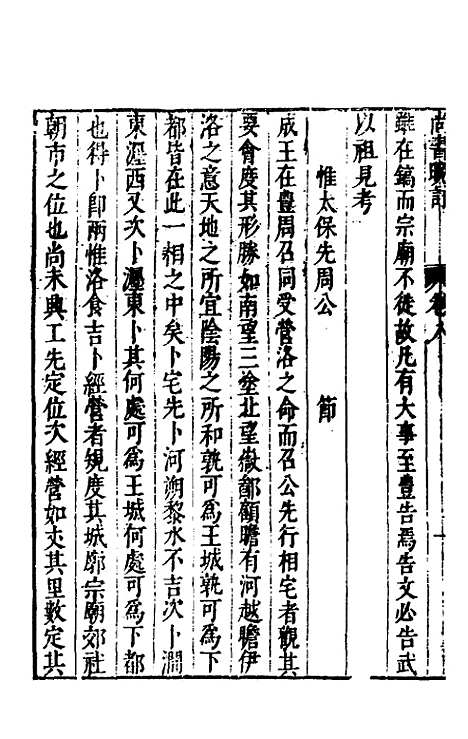 尚書
雖在鎬而宗廟不徙故凡有大事至豐告焉告文必告武
以祖見考
惟太保先周公　節
成王在豐周召同受營洛之命而召公先行相宅者觀其
要會度其形勝如南望三塗北望嶽鄙顧瞻有河越瞻伊
洛之意天地之所宜陰陽之所和孰可爲王城孰可爲下
都皆在此一相之中矣卜宅先卜河朔黎水不吉次卜澗
東瀍西又次卜瀍東卜其何處可爲王城何處可爲下都
也得卜卽兩惟洛食吉卜經營者規度其城廓宗廟郊社
朝市之位也尚未興工先定位次經營如丈其里數定其